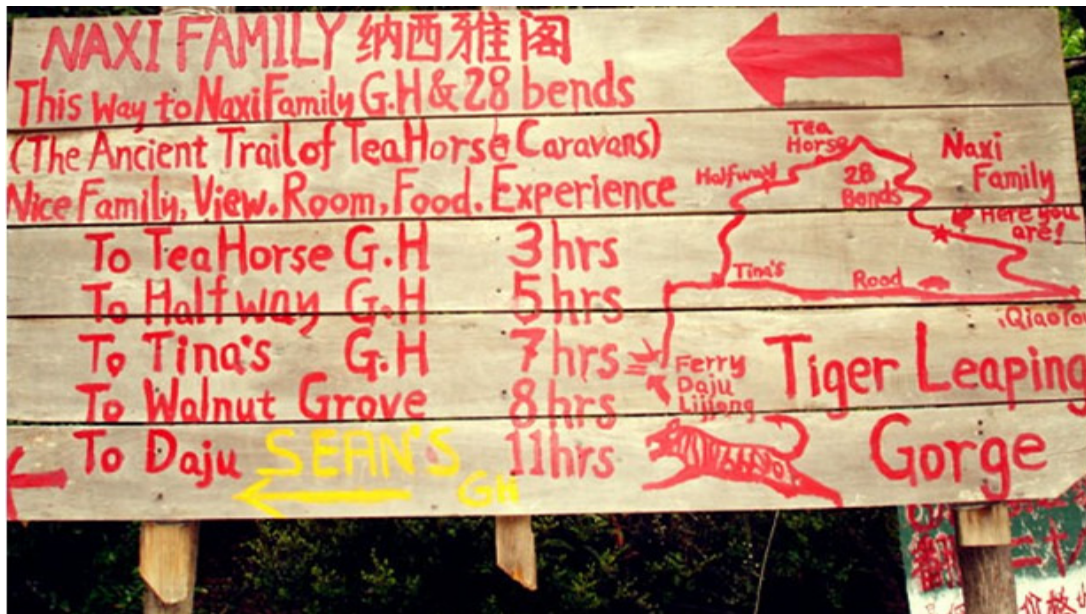 NAXI FAMILY 纳西雅阁
This way to NaxiFamily G.H & 28 bends
(The Ancient Trail of TeaHorse Caravans)
Nice Family, View. Room, Food. Experience
To TeaHorse G.H 3 hrs
To Halfway G.H 5 hrs
To Tina's G.H 7 hrs
To Walnut Grove 8 hrs
To Daju 11 hrs
SEAN'S
GH
Tea
Horse
Halfway
28
Bends
Naxi
Family
Here you
are!
Tina's
Road
Ferry
Daju
Lijiang
Tiger Leaping
Gorge